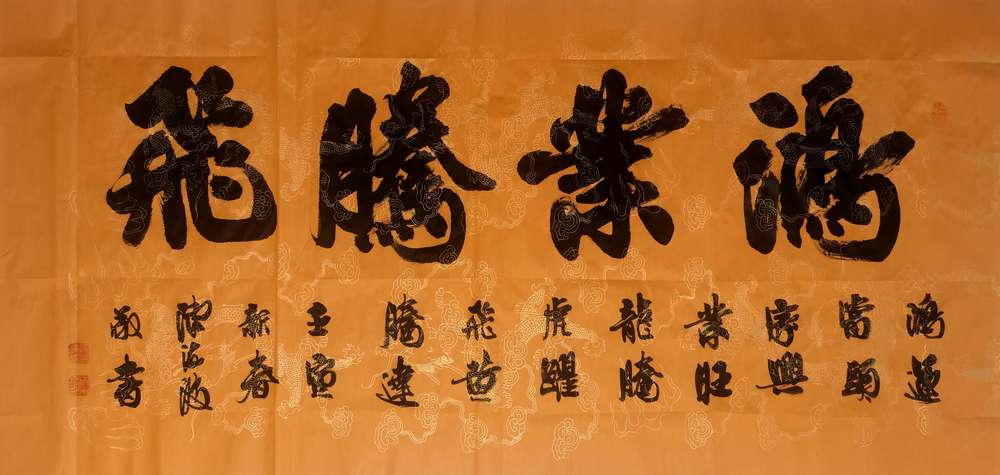 鴻業騰飛
鴻運
當頭
家興
業旺
龍騰
虎躍
飛黃
騰達
壬寅
新春
敬書